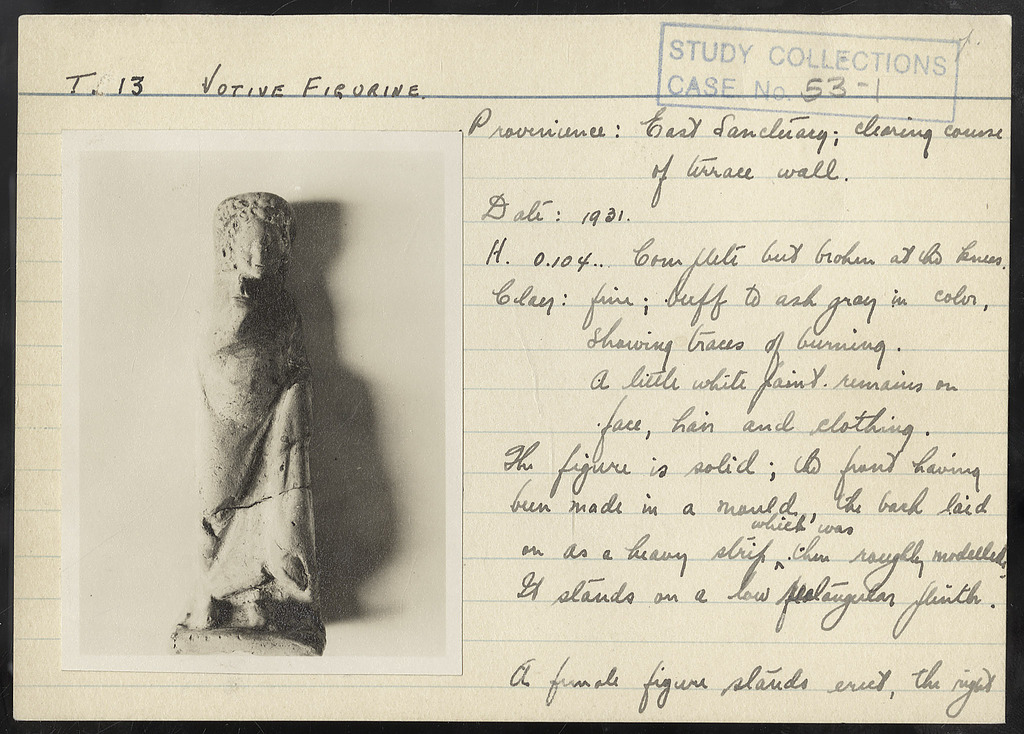 STUDY COLLECTIONS
CASE No. 53-1
T. 13 VOTIVE FIGURINE.
Provenience: East Sanctuary; clearing course
of terrace wall.
Date: 1931.
H. 0.104.. Complete but broken at the knees.
Clay: fine; buff to ash gray in color,
showing traces of burning.
A little white paint remains on
face, hair and clothing.
The figure is solid; the front having
been made in a mould, the back laid
on as a heavy strip which was then roughly modelled.
It stands on a low rectangular plinth.
A female figure stands erect, the right